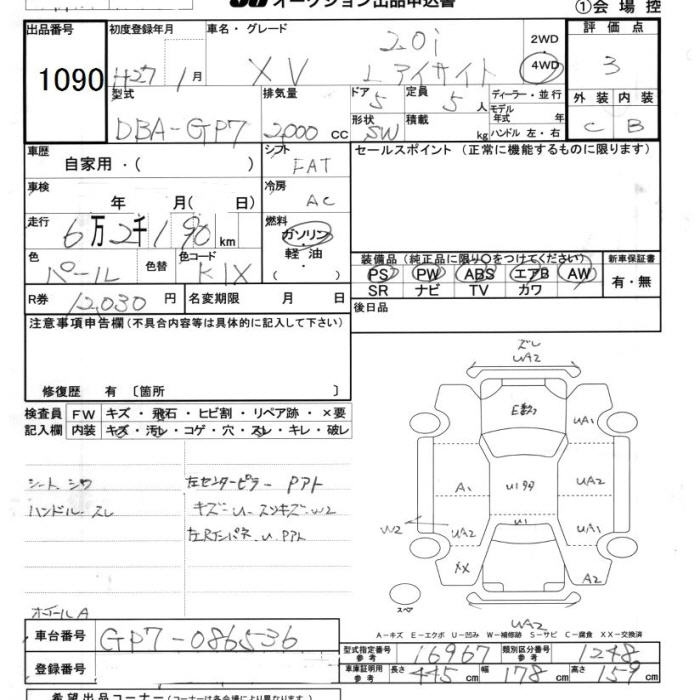 オークション出品申込書
①会場控
出品番号
1090
初度登録年月
H27 1月
車名・グレード
XV
2.0i
Lアイサイト
2WD
4WD
評価点
3
外装 内装
C B
型式
DBA-GP7
排気量
2000 cc
ドア 5
形状 SW
定員 5 人
積載 kg
ディーラー・並行
モデル年式 年
ハンドル 左・右
車歴
自家用・( )
シフト
FAT
セールスポイント (正常に機能するものに限ります)
車検
年 月( 日)
冷房
AC
走行
6万2千190km
燃料
ガソリン
軽油
・( )
色
パール
色替
色コード
K1X
装備品 (純正品に限り○をつけてください)
PS PW ABS エアB AW
SR ナビ TV カワ
新車保証書
有・無
R券 12,030 円
名変期限 月 日
後日品
注意事項申告欄 (不具合内容等は具体的に記入して下さい)
修復歴 有 〔箇所 〕
検査員 記入欄
FW キズ・飛石・ヒビ割・リペア跡・×要
内装 キズ・汚レ・コゲ・穴・スレ・キレ・破レ
シート、シワ
ハンドル、スレ
左センターピラー PアPト
キズー U- スンキズ-W2
左Rインパネ U. Pアト
ホイールA
ズレ
WA2
E数2
UA1
A1
U1 99
UA2
W2
UA2
U1
UA1
XX
A2
スペア
WA2
A-キズ E-エクボ U-凹み W-補修跡 S-サビ C-腐食 XX-交換済
車台番号
GP7-086536
登録番号
型式指定番号 参考 16967
類別区分番号 参考 1248
車庫証明用 参考 長さ 445 cm 幅 178 cm 高さ 159 cm
希望出品コーナー (コーナーは各会場により異なります)